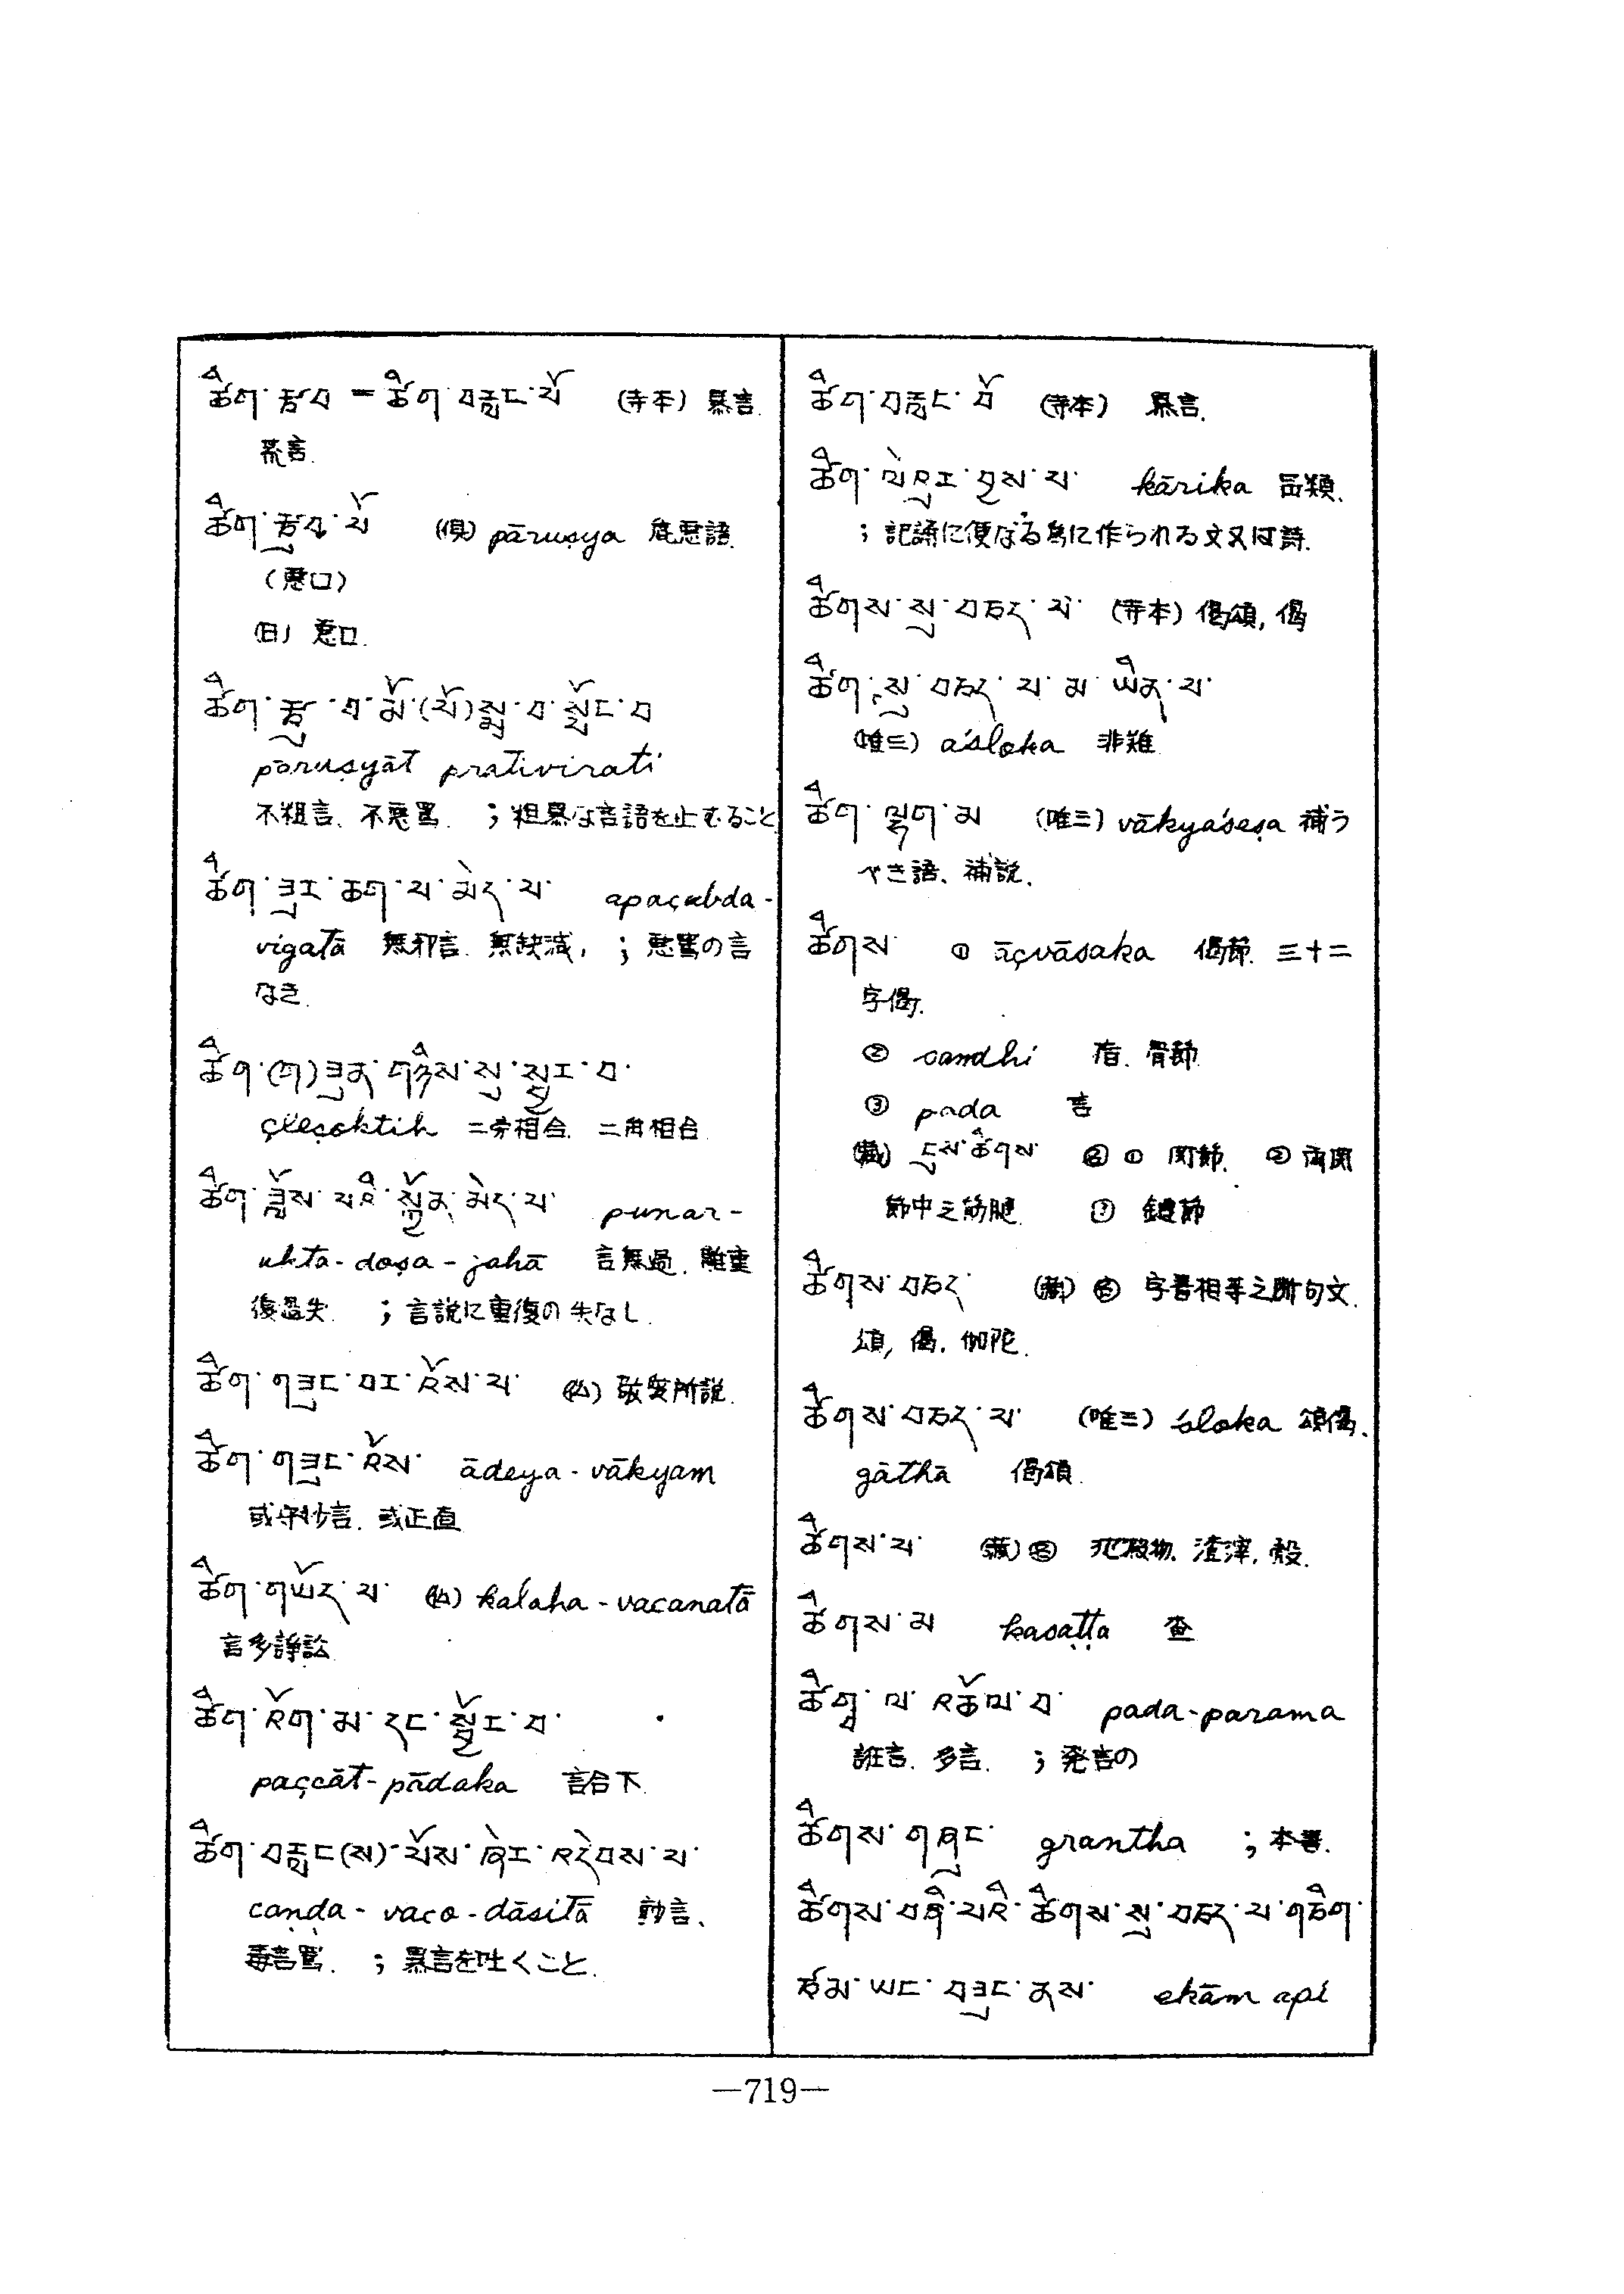 ཚིག་རྩུབ = ཚིག་བརླང་པོ (寺本) 暴言.
荒言.
ཚིག་རྩུབ་པོ (倶) pāruṣya 麁悪語.
(悪口)
(日) 悪口.
pāruṣyāt prativirati
不粗言. 不悪罵. ; 粗暴な言語を止むること
ཚིག་ཟུར་ཆག་པ་མེད་པ་ apaçabda-
vigatā 無邪言. 無缺減, ; 悪罵の言
なき.
ཚིག་(གི)ཟུན་གཉིས་སུ་སྦྱར་བ་
çleçoktih 二旁相合. 二角相合.
ཚིག་ཟློས་པའི་སྐྱོན་མེད་པ་ punar-
ukta-doṣa-jahā 言無過. 離重
復過失. ; 言説に重復の失なし.
ཚིག་གཟུང་བར་འོས་པ་ (仏) 敬愛所説.
ཚིག་གཟུང་འོས་ ādeya-vākyam
或守妙言. 或正直
ཚིག་གཡོད་པ་ (仏) kalaha-vacanatā
言多諍訟
ཚིག་འོག་མ་དང་སྦྱོར་བ་
paçcāt-pādaka 言合下.
ཚིག་བརླང(ས)་པོས་ཞེར་འདེབས་པ་
caṇḍa-vaco-dāsitā
毒言罵. ; 暴言を吐くこと.
ཚིག་བརླང་པོ (寺本) 暴言.
ཚིག་ལེའུར་བྱས་པ་ kārika 品類.
; 記誦に便なる為に作られる文又は詩.
ཚིགས་སུ་བཅད་པ་ (寺本) 偈頌, 偈
ཚིག་སུ་བཅད་པ་མ་ཡིན་པ་
(唯三) aśloka 非難
ཚིག་ལྷག་མ (唯三) vākyaśeṣa 補う
べき語、補説.
ཚིགས་ ① āçvāsaka 偈節. 三十二
字偈.
② sandhi 骨節
③ pada 言
(蔵) དུས་ཚིགས་ 名 ① 関節. ② 両関
節中之筋腱. ③ 鍵節
ཚིགས་བཅད་ (蔵) 名 字音相等之断句文.
頌, 偈. 伽陀.
ཚིགས་བཅད་པ་ (唯三) śloka 頌偈.
gāthā 偈頌.
ཚིགས་པ་ (蔵) 名 渣滓, 殻.
ཚིགས་མ kasaṭṭa 査
ཚིག་ལ་འཆེལ་བ་ pada-parama
誑言. 多言. ; 発言の
ཚིགས་གཞུང་ grantha ; 本書.
ཚིགས་བཞི་པའི་ཚིགས་སུ་བཅད་པ་གཅིག་
ཙམ་ཡང་བཟུང་ནས་ ekām api
—719—